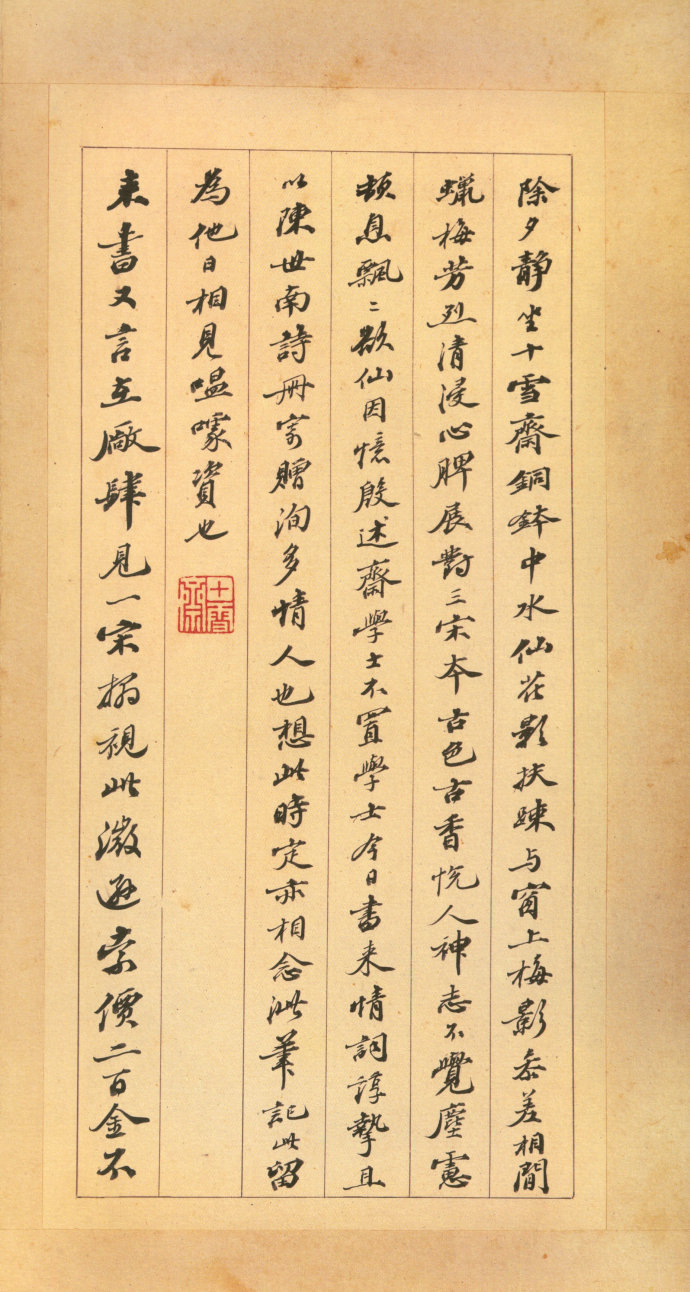 除夕靜坐十雪齋銅鉢中水仙花影扶疎与窗上梅影叅差相間
蠟梅芳烈清浸心脾展對三宋本古色古香怳人神志不覺塵慮
頓息飄〻欲仙因憶殷述齋學士不置學士今日書来情詞諄摯且
以陳世南詩冊寄贈洵多情人也想此時定亦相念泚筆記此留
為他日相見嗢噱資也
十雪齋
来書又言在厰肆見一宋搨視此澂遜索價二百金不